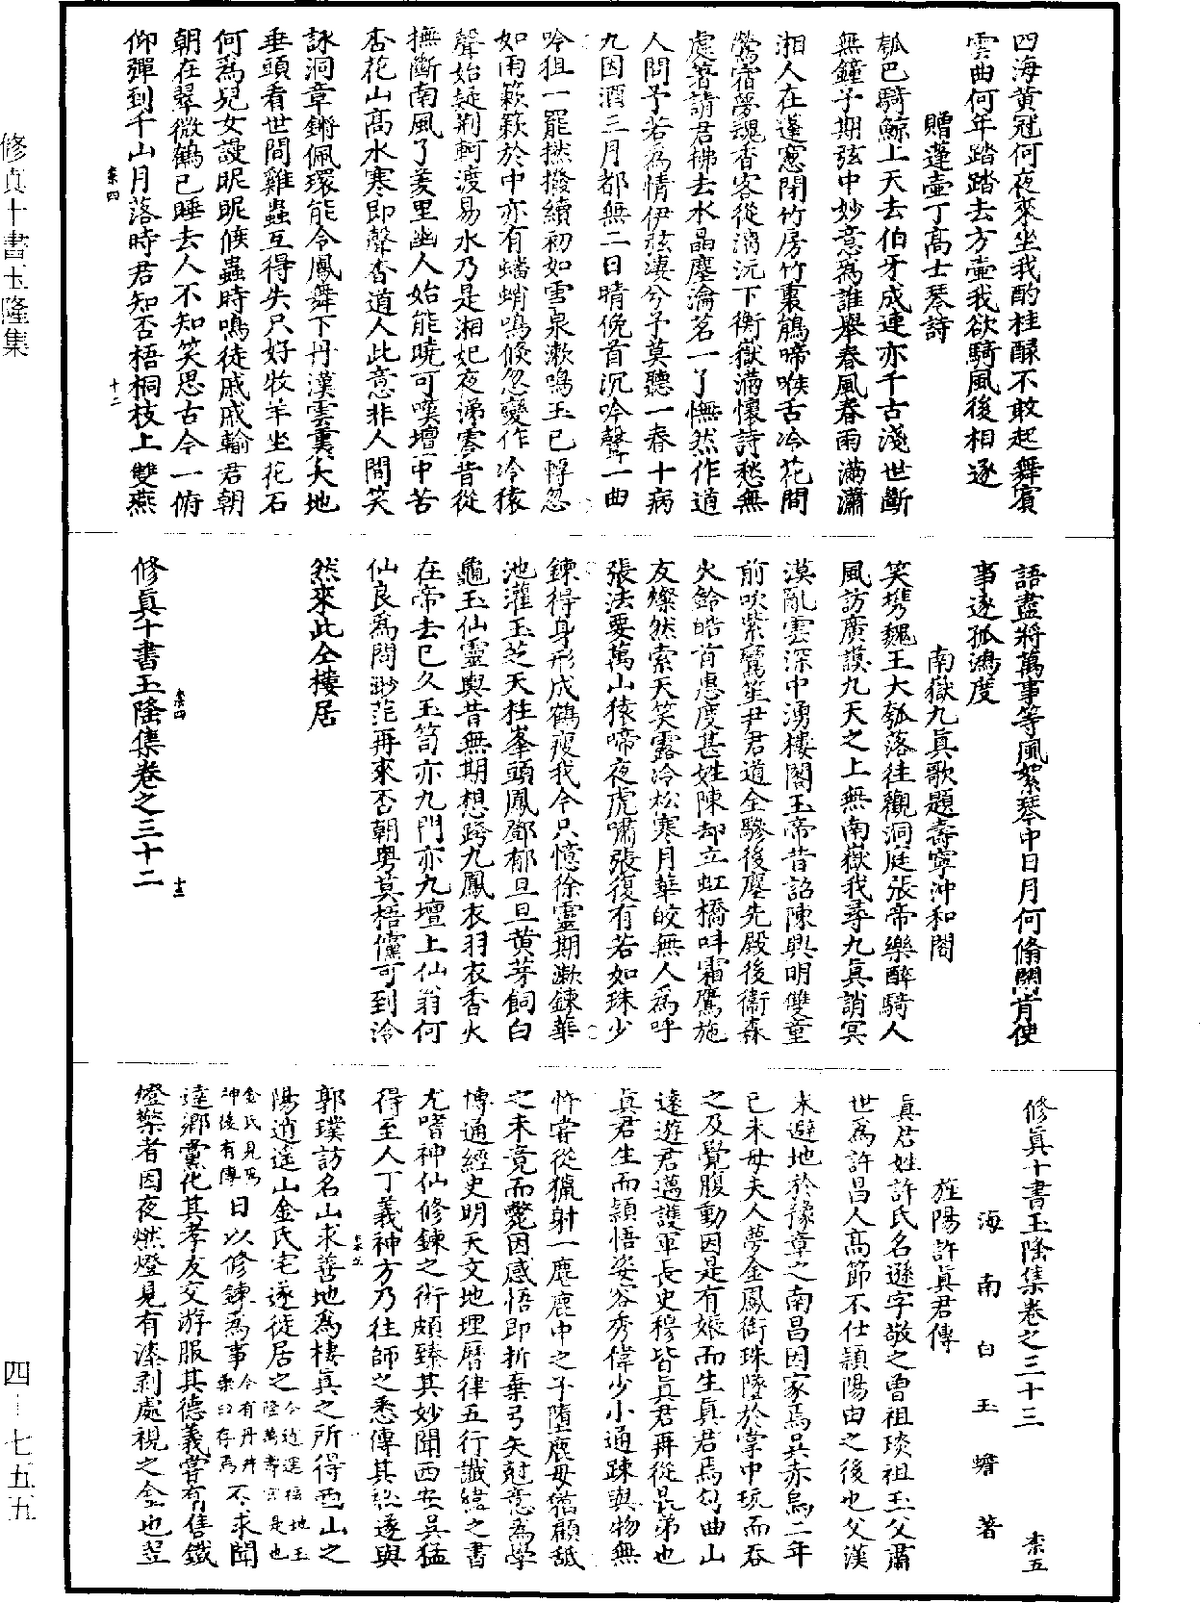 四海黃冠何夜來坐我酌桂醁不敢起舞賓
雲曲何年踏踏去方壺我欲騎風後相逐
贈蓬壺丁高士琴詩
瓠巴騎鯨上天去伯牙成連亦千古淺世斷
無鐘子期弦中妙意為誰舉春風春雨滿瀟
湘人在蓬窻閉竹房竹裏鵑啼喉舌冷花間
鶯宿夢魂香客從湳沅下衡嶽滿懷詩愁無
處著請君拂去水晶塵瀹茗一了憮然作道
人問予若為情伊弦淒兮予莫聽一春十病
九因酒三月都無二日晴俛首沉吟聲一曲
吟狙一罷撚撥續初如雪泉漱鳴玉已醉忽
如雨簌簌於中亦有蟠蛸鳴倏忽變作冷猿
聲始疑荆軻渡易水乃是湘妃夜涕零昔從
撫斷南風了羑里幽人始能曉可嘆壇中苦
杏花山高水寒即聲杳道人此意非人間笑
詠洞章鏘佩環能令鳳舞下丹漢雲裏矣地
垂頭看世間雞蟲互得失只好牧羊坐花石
何為兒女謾昵昵候蟲時鳴徒戚戚輸君朝
朝在翠微鶴已睡去人不知笑思古今一俯
仰彈到千山月落時君知否梧桐枝上雙燕
柰四
十二
語盡將萬事等風絮琴中日月何脩闊肯使
事逐孤鴻度
南嶽九真歌題壽寧沖和閣
笑攜魏王大瓠落往觀洞庭張帝樂醉騎人
風訪廣漠九天之上無南嶽我尋九真誚冥
漠亂雲深中湧樓閣玉帝昔詔陳興明雙童
前吹紫鸞笙尹君道全驂後塵先殿後衞森
火鈴皓首惠度甚姓陳却立虹橋呌霜鷹施
友燦然索天笑露冷松寒月華皎無人為呼
張法要萬山猿啼夜虎嘯張復有若如珠少
鍊得身形成鶴瘦我今只憶徐靈期漱鍊華
池灌玉芝天柱峯頭鳳鄧郁旦旦黃芽飼白
龜玉仙靈輿昔無期想跨九鳳衣羽衣香火
在帝去已久玉笥亦九門亦九壇上仙翁何
仙良為問渺茫再來否朝粵莫梧儻可到泠
然來此仝樓居
修真十書玉隆集卷之三十二
柰四
十三
修真十書玉隆集卷之三十三
柰五
海南白玉蟾著
旌陽許真君傳
真君姓許氏名遜字敬之曾祖琰祖玉父肅
世為許昌人高節不仕潁陽由之後也父漢
末避地於豫章之南昌因家焉吳赤烏二年
己未母夫人夢金鳳銜珠墜於掌中玩而吞
之及覺腹動因是有娠而生真君焉句曲山
遠遊君邁護軍長史穆皆真君再從昆弟也
真君生而穎悟姿容秀偉少小通疎與物無
忤嘗從獵射一麀鹿中之子墮鹿母猶顧舐
之未竟而斃因感悟即折棄弓矢尅意為學
博通經史明天文地理曆律五行讖緯之書
尤嗜神仙修鍊之術頗臻其妙聞西安吳猛
得至人丁義神方乃往師之悉傳其祕遂與
郭璞訪名山求善地為棲真之所得西山之
陽逍遙山金氏宅遂徙居之今逍遙福地玉隆萬壽宮是也
金氏見為神後有傳日以修鍊為事今有丹井藥臼存焉不求聞
達鄉黨化其孝友交游服其德義嘗有售鐵
燈檠者因夜燃燈見有漆剥處視之金也翌
修真十書玉隆集
四—七五五